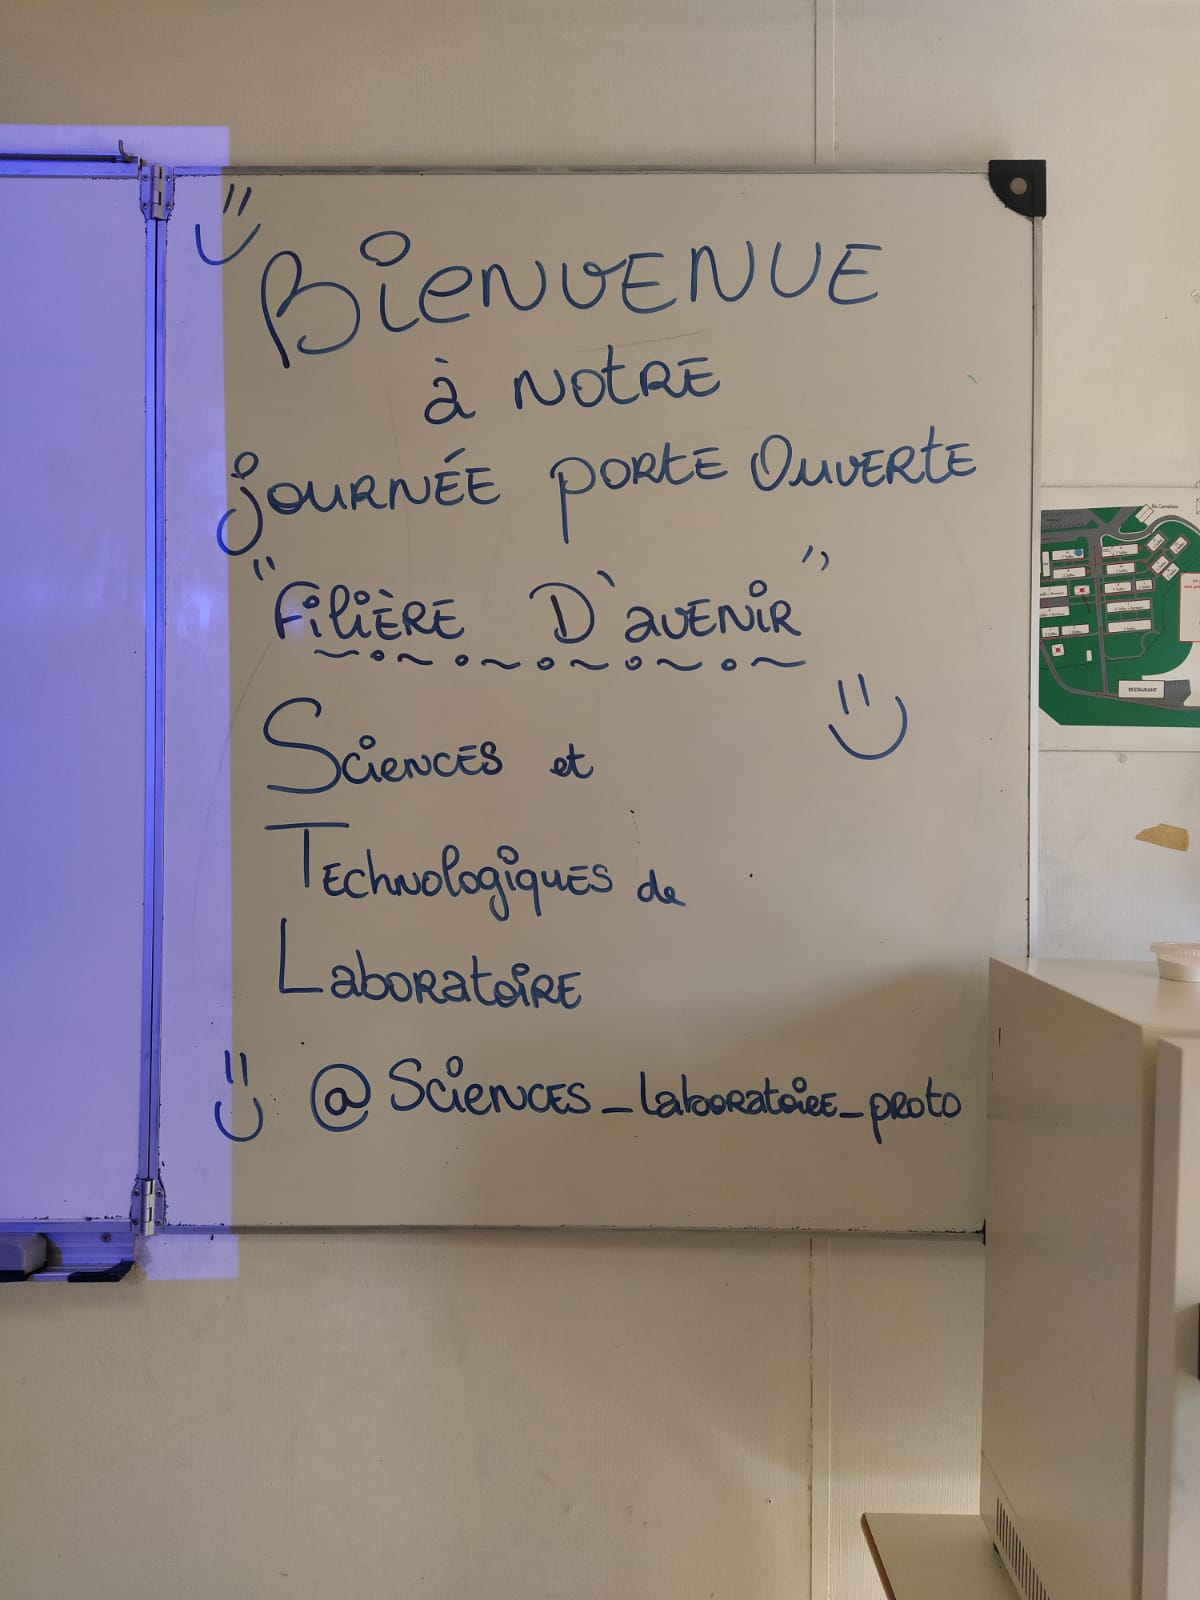 Bienvenue
à notre
journée porte ouverte
"Filière D'avenir"
Sciences et
Technologiques de
Laboratoire
@Sciences_laboratoire_proto
RESTAURANT